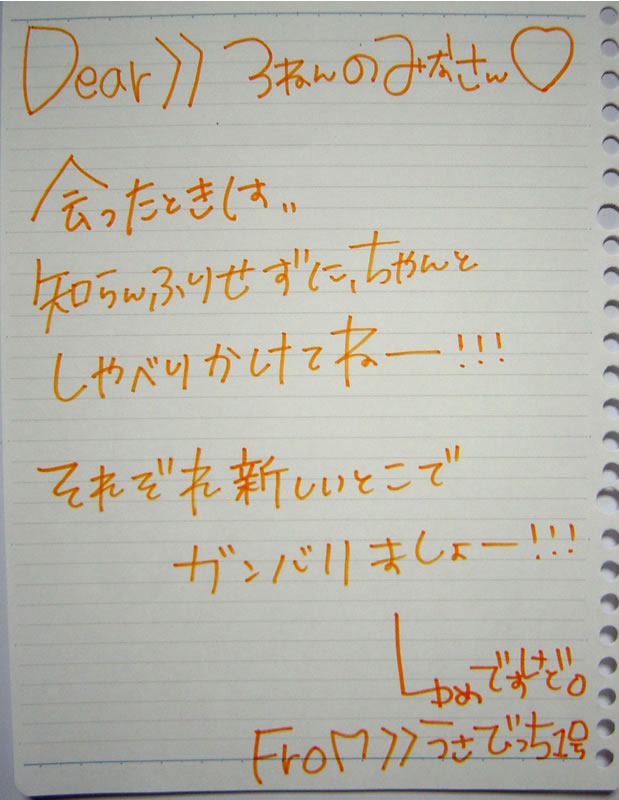 Dear>> 3ねんのみなさん♡
会ったときは、、
知らんふりせずに、ちゃんと
しゃべりかけてねー!!!
それぞれ新しいとこで
ガンバリましょー!!!
ですけど。
FroM>>うさでっち1号